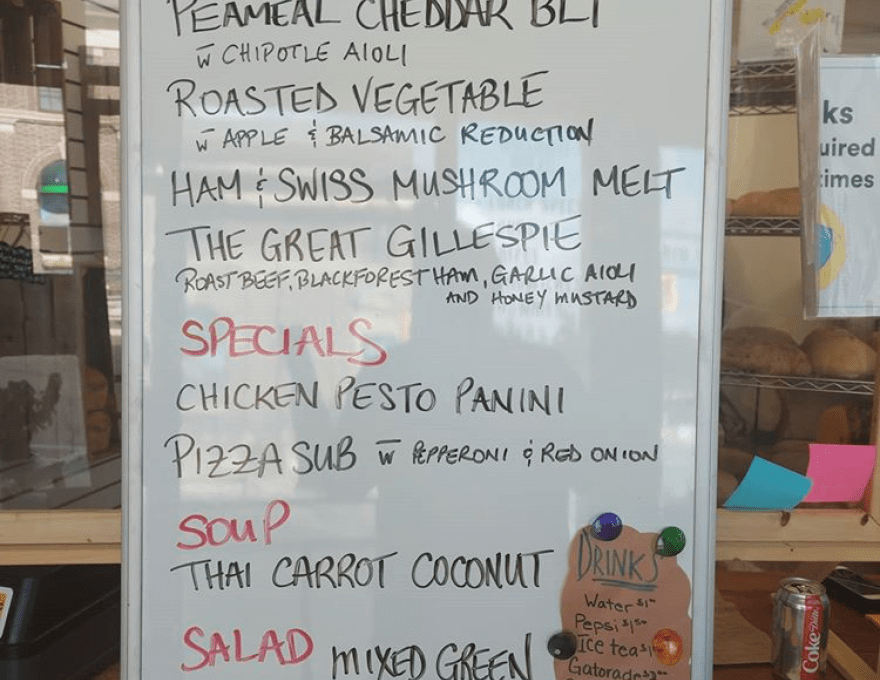 PEAMEAL CHEDDAR BLT
w̄ CHIPOTLE AIOLI
ROASTED VEGETABLE
w̄ APPLE & BALSAMIC REDUCTION
HAM & SWISS MUSHROOM MELT
THE GREAT GILLESPIE
ROAST BEEF, BLACKFOREST HAM, GARLIC AIOLI
AND HONEY MUSTARD
SPECIALS
CHICKEN PESTO PANINI
PIZZA SUB w̄ PEPPERONI & RED ONION
SOUP
THAI CARROT COCONUT
SALAD MIXED GREEN
DRINKS
Water
Pepsi
Ice tea
Gatorade
ks
uired
times
Coke